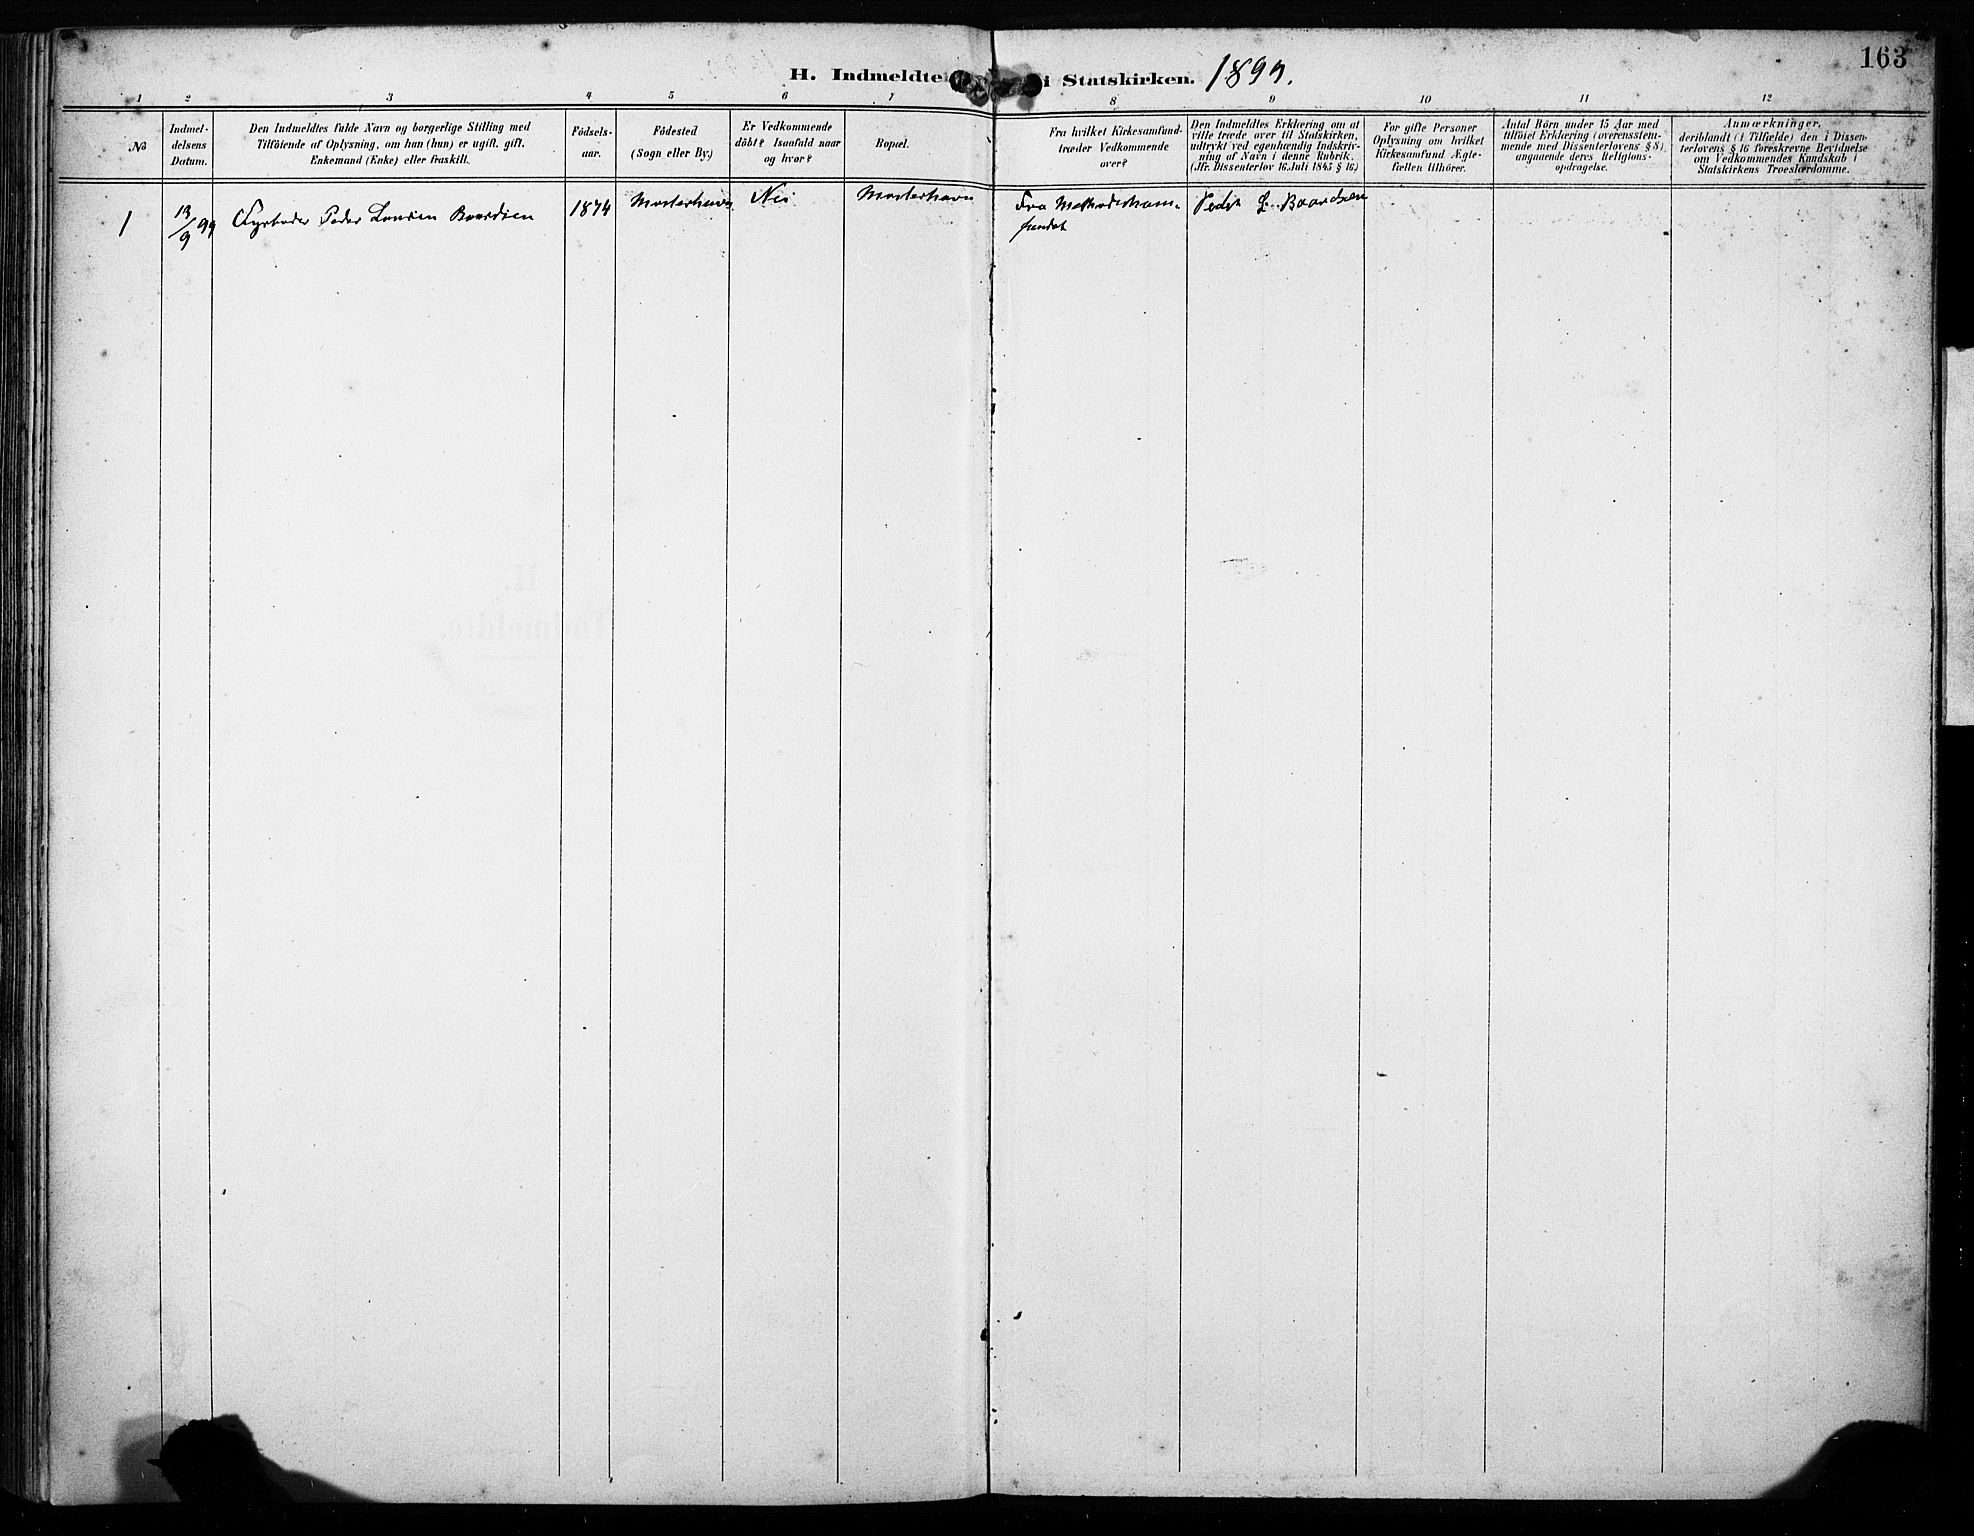 163
H. Indmeldte i Statskirken. 1899.
1 2 3 4 5 6 7 8 9 10 11 12
No
Indmel-
delsens
Datum.
Den Indmeldtes fulde Navn og borgerlige Stilling med
Tilföiende af Oplysning, om han (hun) er ugift, gift,
Enkemand (Enke) eller fraskilt.
Födsels-
aar.
Födested
(Sogn eller By.)
Er Vedkommende
döbt? Isaafald naar
og hvor?
Bopæl.
Fra hvilket Kirkesamfund-
træder Vedkommende
over?
Den Indmeldtes Erklæring om at
ville træde over til Statskirken,
udtrykt ved egenhændig Indskriv-
ning af Navn i denne Rubrik.
(Jfr. Dissenterlov 16. Juli 1845 § 16.)
For gifte Personer
Oplysning om hvilket
Kirkesamfund Ægte-
fællen tilhörer.
Antal Börn under 15 Aar med
tilföiet Erklæring (overensstem-
mende med Dissenterlovens § 8)
angaaende deres Religions-
opdragelse.
Anmærkninger,
deriblandt (i Tilfælde) den i Dissen-
terlovens § 16 foreskrevne Bevidnelse
om Vedkommendes Kundskab i
Statskirkens Troeslærdomme.
1
13/9 99
Fyrböder Peder Baardsen
1874
Mosterhavn
Nei
Mosterhavn
Fra
fundet
Peder L. Baardsen